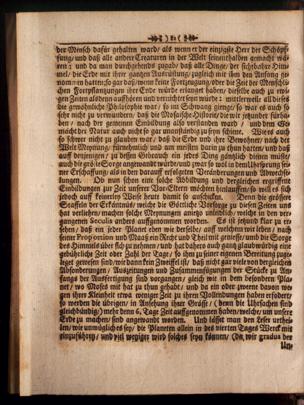 der Mensch dafür gehalten ward/ als wenn er der einzigste Herr der Schöpf-
fung/ und daß alle andere Creaturen in der Welt seinenthalben gemacht wä-
ren; und da man durchgehends zugab/ daß alle Dinge/ der sichtbahre Him-
mel/ die Erde mit ihrer gantzen Ausrüstung/ zugleich mit ihm den Anfang ge-
nommen hatten; so gar daß/ wenn seine Fortzeugung/ oder die Zeit der Menschli-
chen Fortpflantzungen ihre Ende würde erlanget haben/ dieselbe auch zu
Zeiten alsdenn auffhören und vernichtet seyn würde: mittlerweile all dieses
die gewöhnliche Philosophie war/ so im Schwang gienge/ so war es auch so
sehr nicht zu verwundern/ daß die
den/ nach der gemeinen Einbildung also verstanden ward/ und dem Ge-
mächt der Natur auch nicht so gar unanständig zu seyn schiene. Wie es auch
so schwer nicht zu glauben war/ daß die Erde und ihre Bewohner/ nach der
Welt Meynung/ fürnehmlich und am meisten darin zu thun hatten/ und daß
auff denjenigen/ zu dessen Gebrauch ein jedes Ding gäntzlich dienen müste/
auch die gröste Sorge angewandt würde/ und zwar so wol in dem Uhrsprung sei-
ner Erschaffung/ als in den darauff erfolgeten Veränderungen und Abwechse-
lungen. Ob nun schon eine solche Abbildung und dergleichen ergriffene
Einbildungen zur Zeit unserer Vor-Eltern möchten hinlauffen/ so will es sich
jedoch auff feinerley Weise heut damit so
Staffeln der Erkäntniß/ welche die Göttliche Vorsorge zu diesen Zeiten uns
hat verliehen/ machen solche Meynungen anietzo unleidlich/ welche in den ver-
gangenen Seculis anders auffgenommen worden. Es ist jetzund klar zu er-
sehen/ daß ein jeder Planet eben wie derselbe/ auff welchem wir leben/ nach
seiner Proportion und Maaß ein Recht und Theil mit genieße/ und die Sorge
des Himmels über sich zu nehmen/ und hat dahero auch gantz glaubwürdig eine
gebührliche Zeit oder Zahl der Tage/ so ihm zu seiner eigenen Bereitung zuge-
leget gewesen sind; wie dann kein Zweiffel ist/ daß nicht gar viele von dergleichen
Absonderungen/ Auszeitungen und Zusammenfügungen der Stücke zu An-
fangs der Ausfertigung sind vorgangen/ gleich wie in dem besondern Pla-
net/ wo Moses mit hat zu thun gehabt; und da ein oder zween davon we-
gen ihrer Kleinheit etwa weniger Zeit zu ihren Vollendungen haben erfodert/
so werden die übrigen/ in Ansehung ihrer Grösse/ (wann die Uhrsachen sonst
gleichbündig) mehr denn 6. Tage Zeit auffgenommen haben/ welche/ um unsere
Erde zu machen/ sind angewandt worden. Und lässet man den Leser urthei-
len/ wie unmögliches sey/ die Planeten allein in des vierten Tages Werck mit
einzuführen/ und viel weniger wird solches seyn können/ (Da wir gradus der